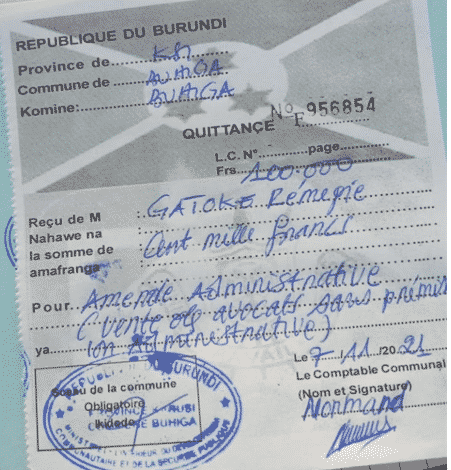 REPUBLIQUE DU BURUNDI
Province de...KRSI
Commune de ...BUHIGA
Komine:...BUHIGA
QUITTANCE N° F 956854
L.C. N°...page...
Frs...100.000
Reçu de M : GATOKE Rémegie
Nahawe na
la somme de : Cent mille francs
amafranga
Pour. Amende Administrative
(vente des avocats sans permis
ya...ion Administrative)
Le 7/11/2021
Le Comptable Communal
(Nom et Signature)
Normand
Sceau de la commune
Obligatoire
Ikidodo
REPUBLIQUE DU BURUNDI
PROVINCE KARUSI
COMMUNE BUHIGA
COMMUNAUTAIRE ET DE LA SECURITE PUBLIQUE